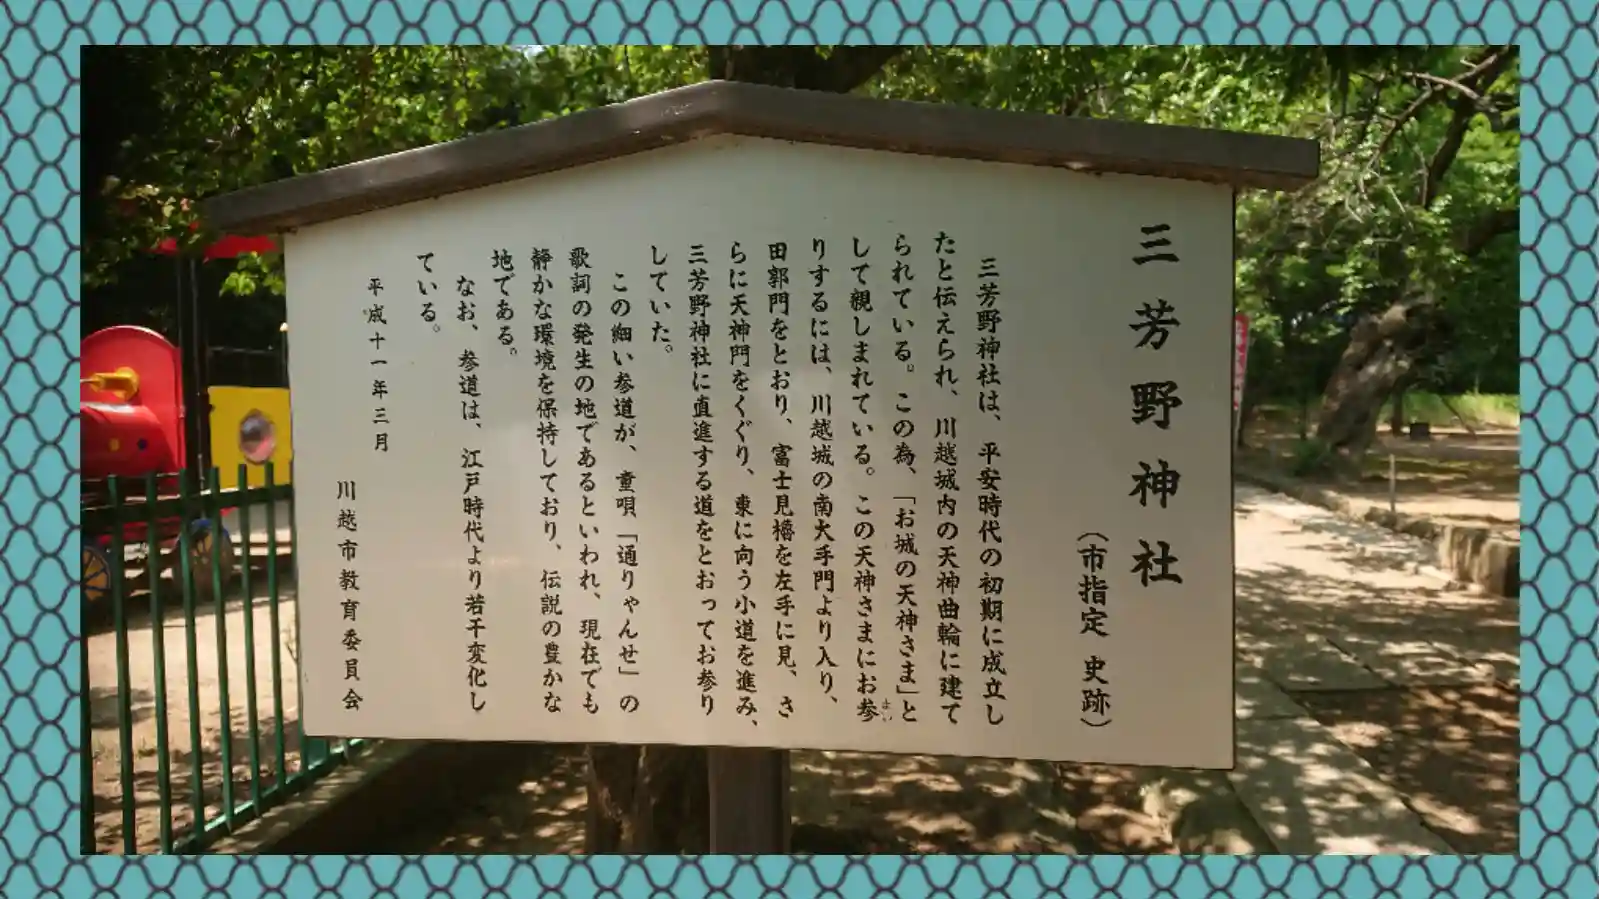 三芳野神社
（市指定 史跡）
三芳野神社は、平安時代の初期に成立し
たと伝えられ、川越城内の天神曲輪に建て
られている。この為、「お城の天神さま」と
して親しまれている。この天神さまにお参
まい
りするには、川越城の南大手門より入り、
田郭門をとおり、富士見櫓を左手に見、さ
らに天神門をくぐり、東に向う小道を進み、
三芳野神社に直進する道をとおってお参り
していた。
この細い参道が、童唄「通りゃんせ」の
歌詞の発生の地であるといわれ、現在でも
静かな環境を保持しており、伝説の豊かな
地である。
なお、参道は、江戸時代より若干変化し
ている。
平成十一年三月
川越市教育委員会